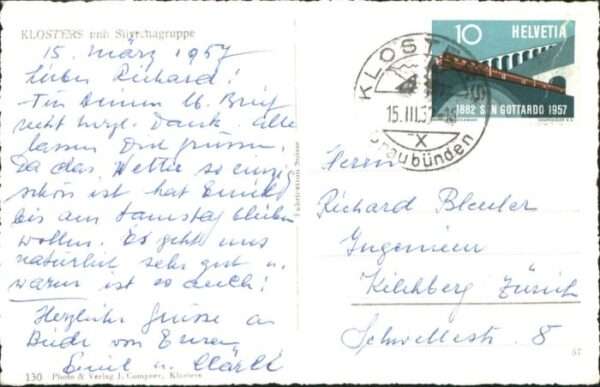 KLOSTERS und Silvrettagruppe
15. März 1957
Lieber Richard!
Für Deinen lb. Brief
recht herzl. Dank. Alle
lassen Dich grüssen.
Da das Wetter so einzig
schön ist hat
bis am Samstag bleiben
wollen. Es geht uns
natürlich sehr gut u.
warm ist es auch!
Herzliche Grüsse an
Beide von Euren
Emil u. Märti
130 Photo & Verlag J. Compner, Klosters
Fabrication Suisse
10 HELVETIA
1882 SAN GOTTARDO 1957
KLOSTERS
15.III.57
X
Graubünden
Herrn
Richard Bleuler
Ingenieur
Kilchberg Zürich
8
57